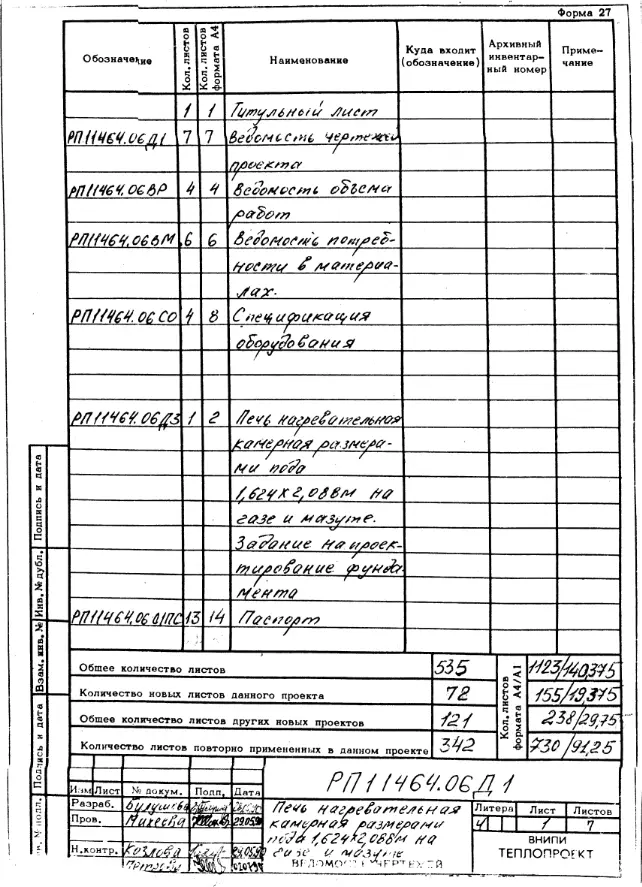 Форма 27
Обозначение Кол. листов Кол. листов формата А4 Наименование Куда входит (обозначение) Архивный инвентар- ный номер Приме- чание
1 1 Титульный лист
РП11464.06Д1 7 7 Ведомость чертежей
проекта
РП11464.06ВР 4 4 Ведомость объема
работ
РП11464.06ВМ 6 6 Ведомость потреб-
ности в материа-
лах.
РП11464.06СО 4 8 Спецификация
оборудования
РП11464.06Д3 1 2 Печь нагревательная
камерная размера-
ми пода
1,624х2,088м на
газе и мазуте.
Задание на проек-
тирование фунда-
мента
РП11464.06.01ПС 13 14 Паспорт
Общее количество листов 535 Кол. листов формата А4/А1 1123/140,375
Количество новых листов данного проекта 72 155/19,375
Общее количество листов других новых проектов 121 238/29,75
Количество листов повторно примененных в данном проекте 342 730/91,25
Подпись и дата
Инв. № дубл.
Взам. инв. №
Подпись и дата
РП11464.06Д1
Изм Лист № докум. Подп. Дата
Разраб.
Пров. Михеева
Н.контр. Козлова
Печь нагревательная
камерная размерами
пода 1,624х2,088м на
газе и мазуте
ВЕДОМОСТЬ ЧЕРТЕЖЕЙ
Литера Лист Листов
1 7
ВНИПИ
ТЕПЛОПРОЕКТ